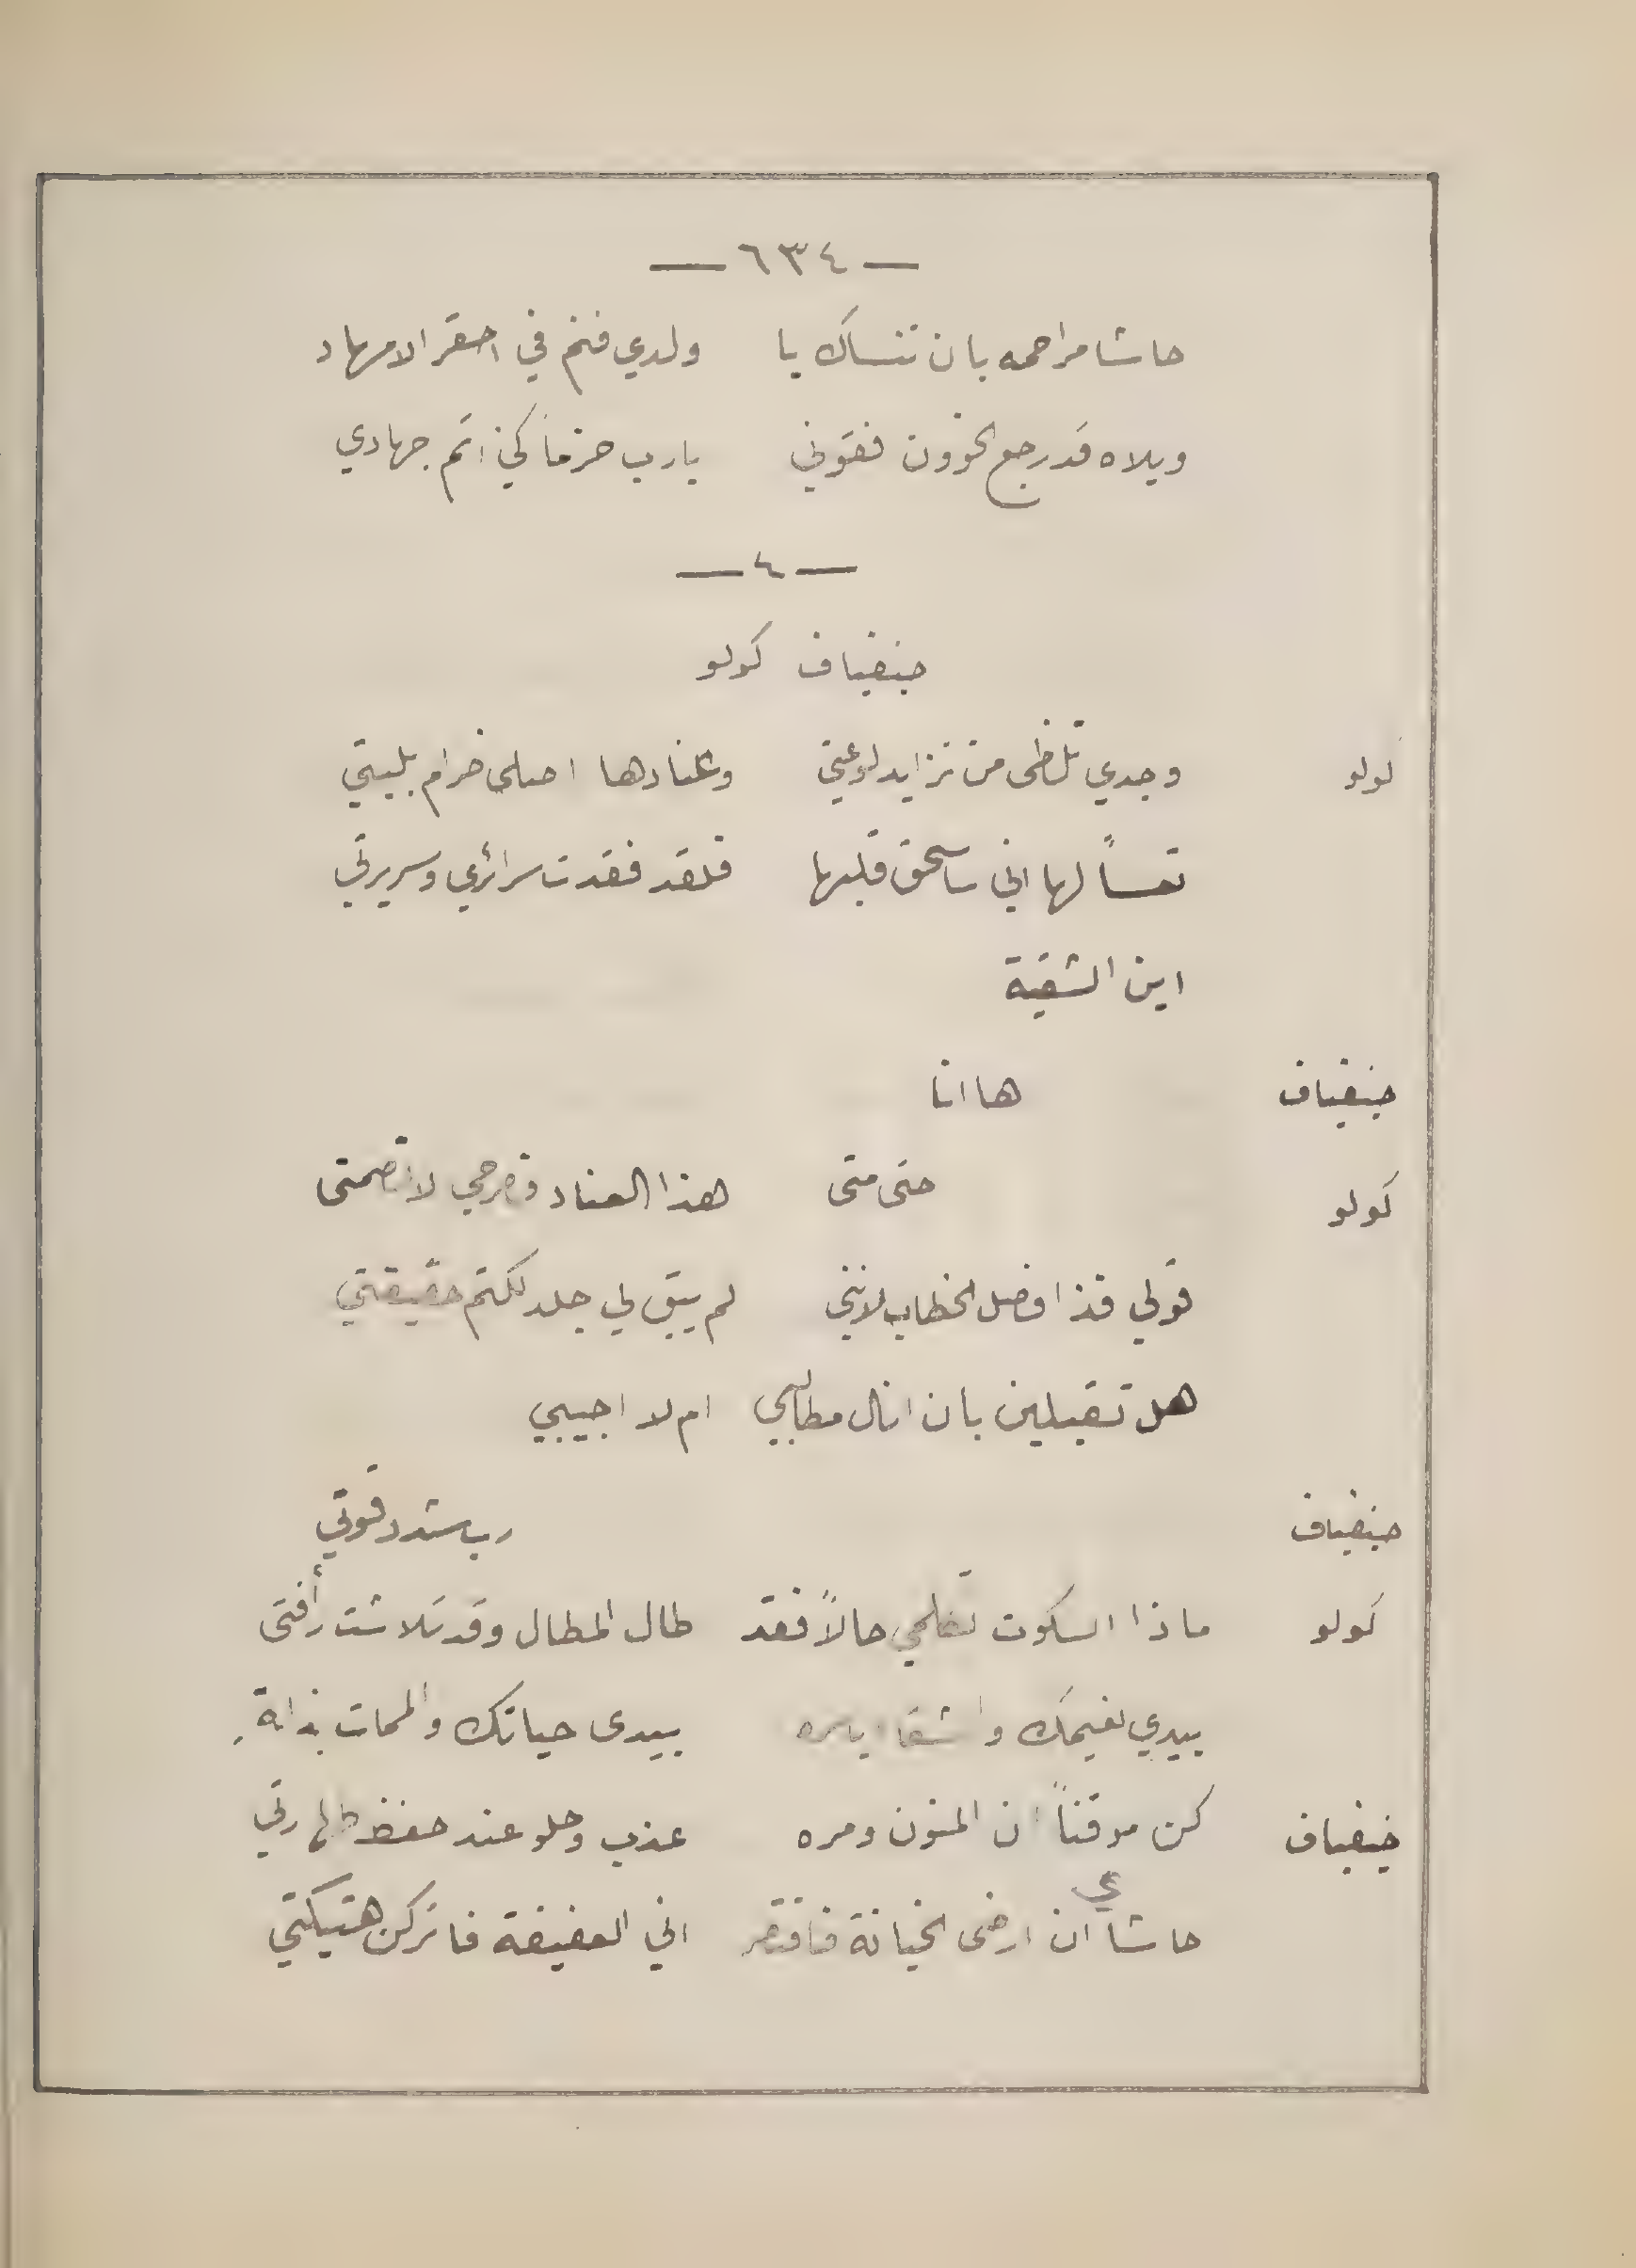 — ٦٣٤ —
حاشا مراحمه بان تنساك يا ولدي فنم في احقر الامهاد
ويلاه قد رجع الخوون فقوني يارب حزماً كي اتم جهادي
— ٤ —
جنفياف كولو
لولو وجدي تلظى من تزايد لوعتي وعنادها اصلى ضرام بليتي
تعساً لها اني ساسحق قلبها فلقد فقدت سرائري وسريرتي
اين الشقية
جنفياف ها انا
كولو حتى متى هذا العناد فصرحي لا تصمتى
قولي فذا فصل الخطاب لانني لم يبق لي جلد لكتم حقيقتي
هل تقبلين بان انال مطالبي ام لا اجيبي
جنفياف رب شدد قوتي
كولو ماذا السكوت تكلمي حالاً فقد طال المطال وقد تلاشت رأفتى
بيدي نعيمك والشقاء باسره بيدى حياتك والممات بذلةِ
جنفياف كن موقناً ان المنون ومره عذب وحلو عند حفظ طهارتي
حاشاي ان ارضى الخيانة فاقتصر اني العفيفة فاتركن هتيكتي